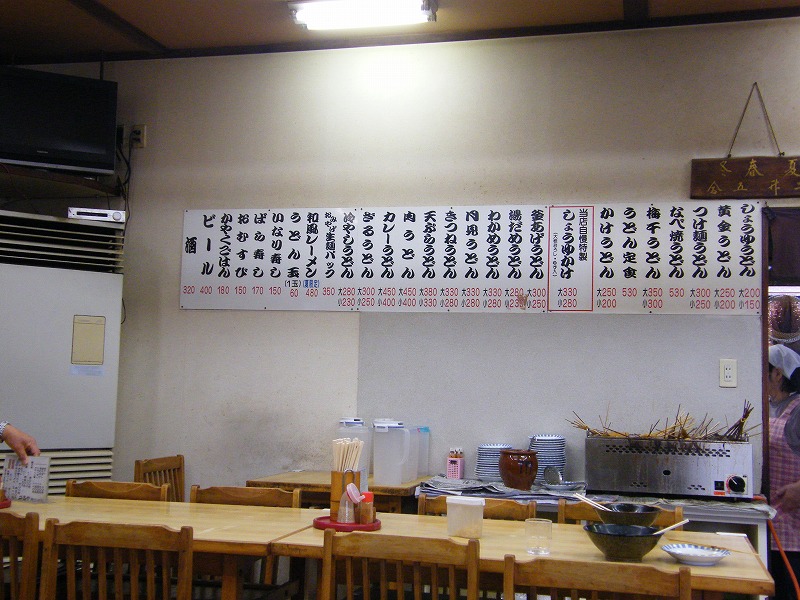 しょうゆうどん 大200 小150
黄金うどん 大250 小200
つけ麺うどん 大300 小250
なべ焼うどん 530
梅干うどん 大350 小300
うどん定食 530
かけうどん 大250 小200
当店自慢特製
しょうゆかけ
大330 小280
釜あげうどん 大300 小250
湯だめうどん 大280 小230
わかめうどん 大380 小330
月見うどん 大330 小280
きつねうどん 大330 小280
天ぷらうどん 大380 小330
肉うどん 大450 小400
カレーうどん 大450 小400
ざるうどん 大300 小250
冷やしうどん 大280 小230
おみやげ生麺パック 350
和風ラーメン (夏限定) 480
うどん玉 (1玉) 60
いなり寿し 150
ばら寿し 170
おむすび 150
かやくごはん 180
ビール 400
酒 320